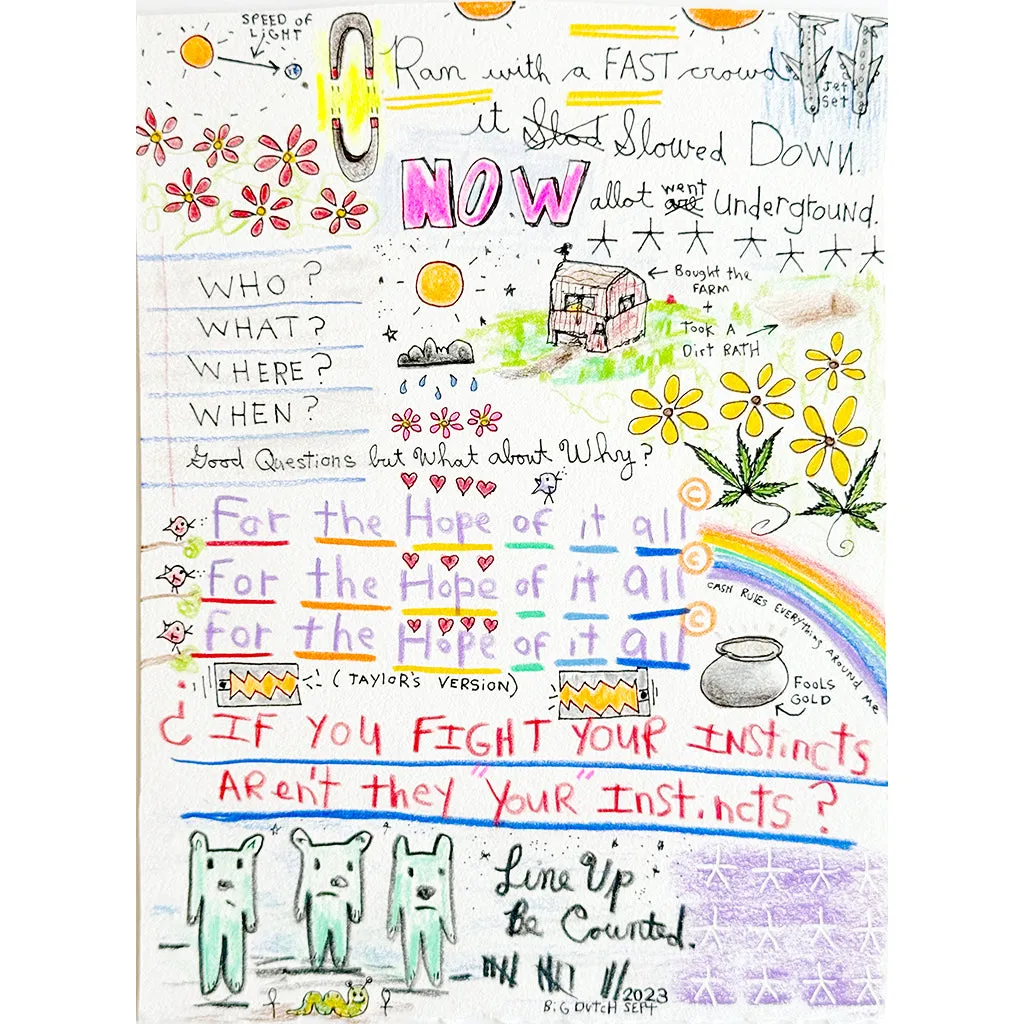 SPEED OF
LIGHT
Ran with a FAST crowd
Jet
Set
it Slowed Down.
NOW allot went Underground.
Bought the
FARM
+
Took A
Dirt PATH
WHO?
WHAT?
WHERE?
WHEN?
Good Questions but What about Why?
For the Hope of it all ©
For the Hope of it all ©
For the Hope of it all ©
CASH RULES EVERYthing AROUND ME
(TAYLOR'S VERSION)
FOOLS
GOLD
¿ IF YOU FIGHT YOUR INStincts
AReN't they "YOUR" InSt.ncts?
Line Up
Be Counted.
2023
BiG DUtcH SEPt